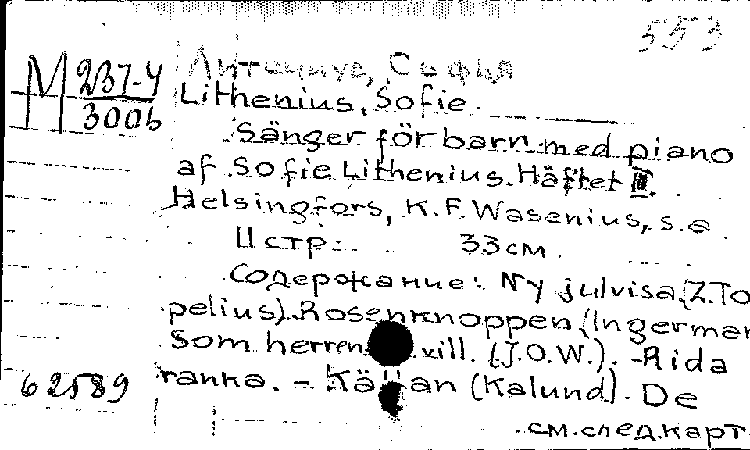 553
М 237-4
3006
Литениус, Софія
Lithenius, Sofie.
Sånger för barn med piano
af Sofie Lithenius. Häftet II.
Helsingfors, K.F. Wasenius, s.a.
11 стр. 33 см.
Содержание: Ny julvisa (Z. To
pelius). Rosenknoppen (Ingerman
Som herren vill. (J.O.W.). - Rida
ranka. - Kä an (Kalund). De
62589
см. след. карт.